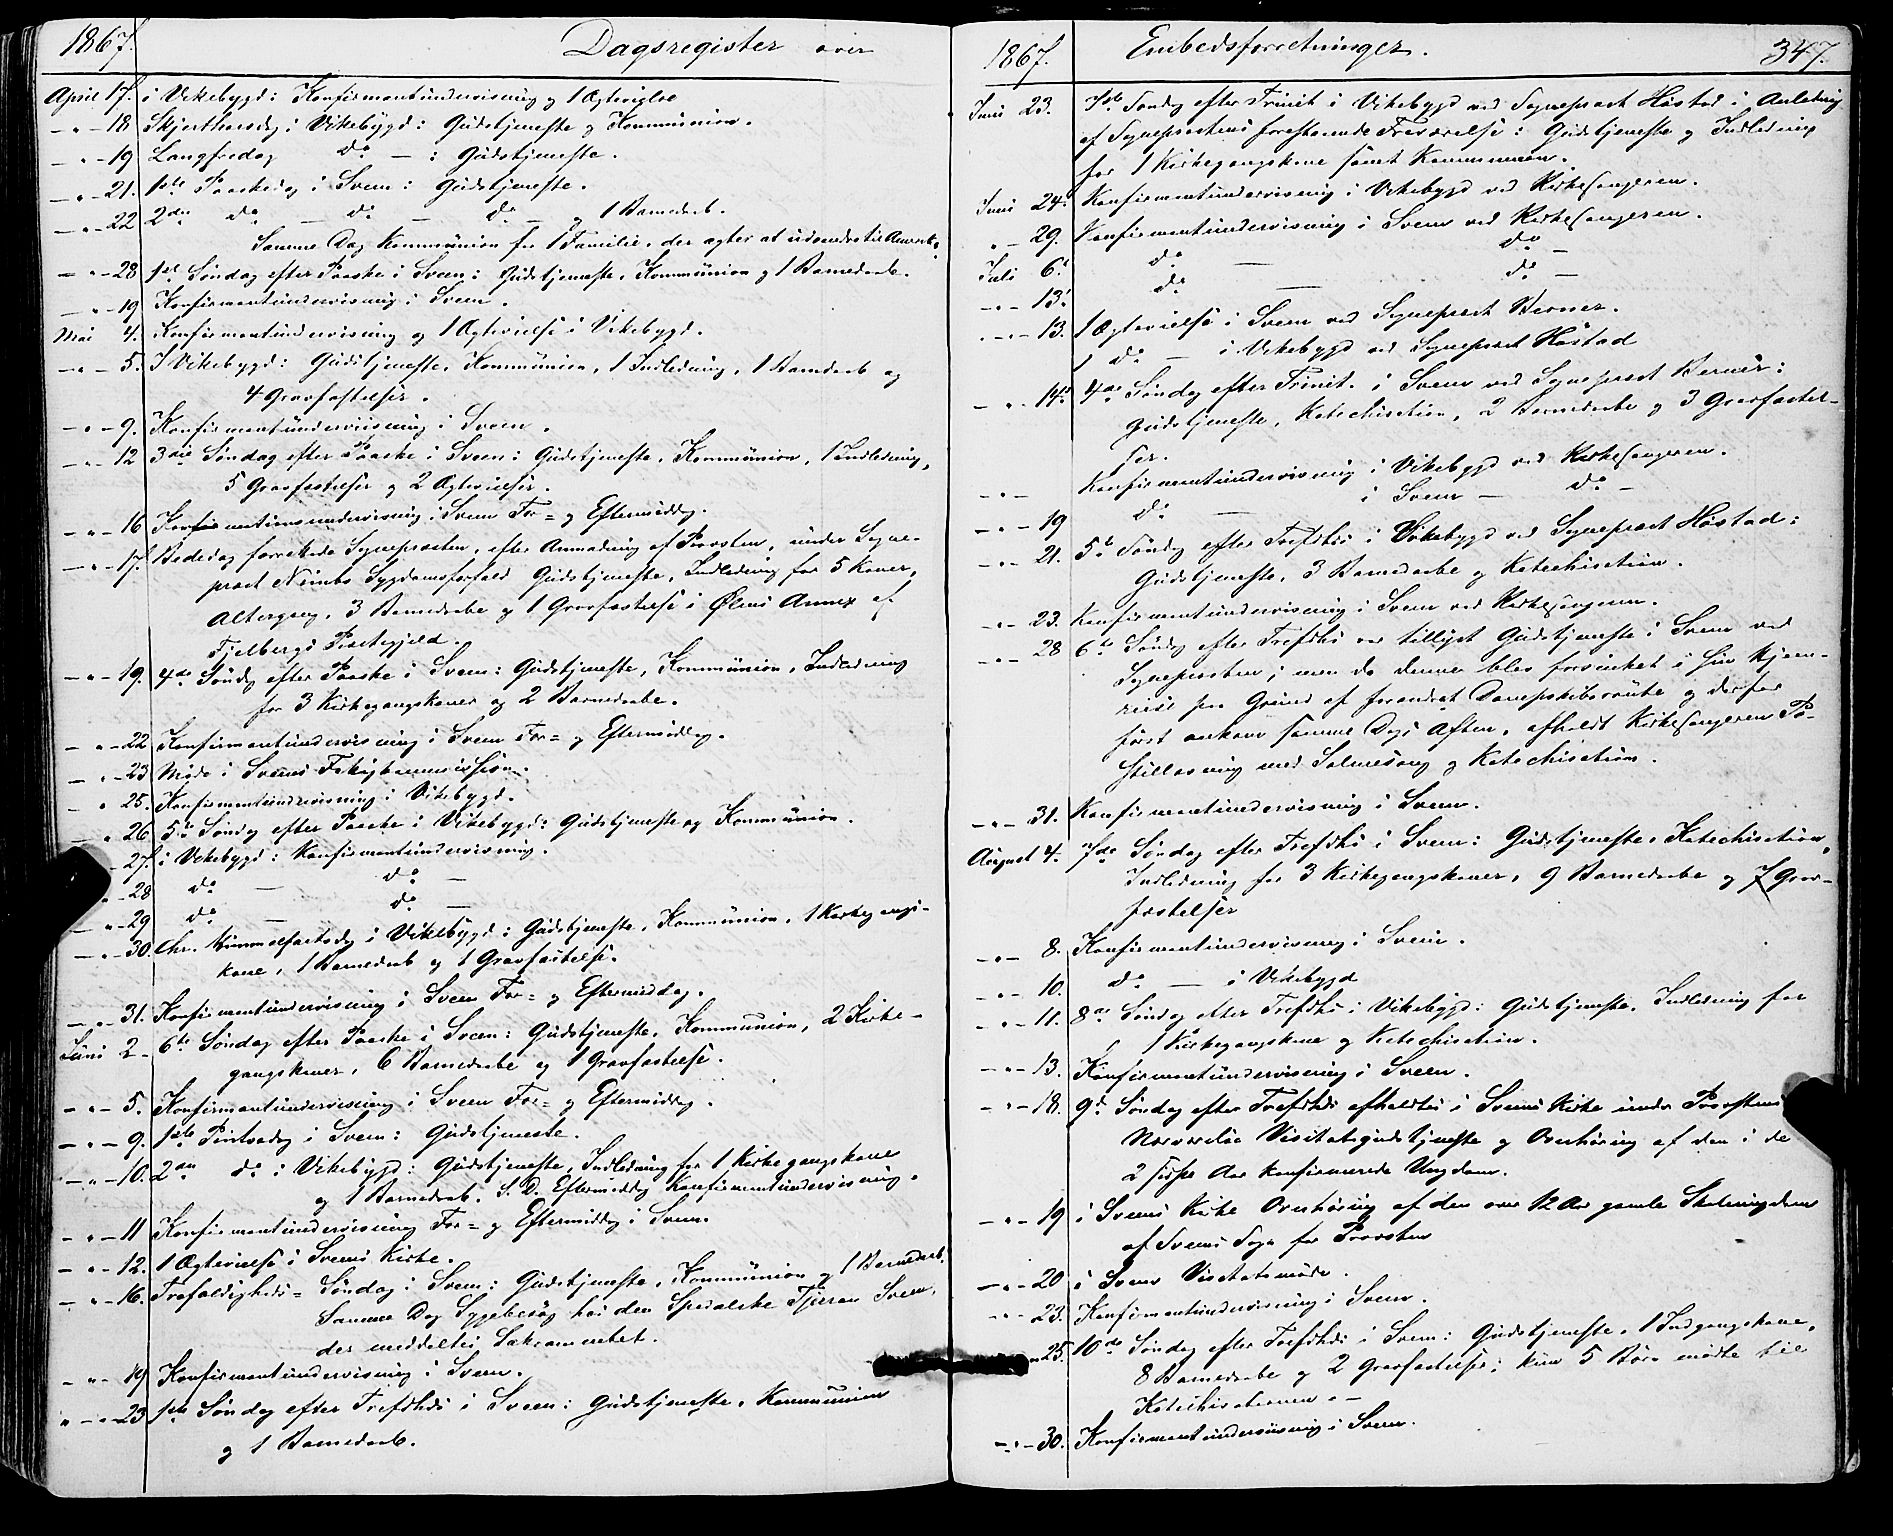 1867. Dagsregister over
April 17. i Vikebygd: Konfirmantundervisning og 1 Ægtevielse
— " — 18 Skjærthorsdag i Vikebygd: Gudstjeneste og Kommunion.
— " — 19 Langfredag do — : Gudstjeneste.
— " — 21. 1ste Paaskedag i Sveen: Gudstjeneste.
— " — 22 2den do — do — do — og 1 Barnedaab.
Samme Dag Kommunion for 1 Familie, der agter at udvandre til Amerik:
— " — 28 1ste Søndag efter Paaske i Sveen: Gudstjeneste, Kommunion og 1 Barnedaab.
— " — 19 Konfirmantundervisning i Sveen.
Mai 4. Konfirmantundervisning og 1 Ægtevielse i Vikebygd.
— " — 5. I Vikebygd: Gudstjeneste, Kommunion, 1 Indledning, 1 Barnedaab og
4 Gravfæstelser.
— " — 9. Konfirmantundervisning i Sveen.
— " — 12 3die Søndag efter Paaske i Sveen: Gudstjeneste, Kommunion, 1 Indledning,
5 Gravfæstelser og 2 Ægtevielser.
— " — 16 Konfirmationsundervisning i Sveen For= og Eftermiddag.
— " — 17. Bededag forrettede Sognepræsten, efter Anmodning af Provsten, under Sogne-
præst Sygdomsforfald Gudstjeneste, Indledning for 5 Koner,
Altergang, 3 Barnedaabe og 1 Gravfæstelse i Ølens Annex af
Fjelbergs Præstegjeld.
— " — 19. 4de Søndag efter Paaske i Sveen: Gudstjeneste, Kommunion, Indledning
for 3 Kirkegangskoner og 2 Barnedaabe.
— " — 22 Konfirmantundervisning i Sveen For= og Eftermiddag.
— " — 23 Møde i Sveens Fattigkommission.
— " 25. Konfirmantundervisning i Vikebygd.
— " 26 5te Søndag efter Paaske i Vikebygd: Gudstjeneste og Kommunion.
27. i Vikebygd: Konfirmantundervisning.
" — 28 do — do —
— " — 29 do — do —
— " — 30. Chr. Himmelfartsdag i Vikebygd: Gudstjeneste, Kommunion, 1 Kirkegangs-
kone, 1 Barnedaab og 1 Gravfæstelse.
— " — 31. Konfirmantundervisning i Sveen For= og Eftermiddag.
Juni 2 - 6te Søndag efter Paaske i Sveen: Gudstjeneste, Kommunion, 2 Kirke-
gangskoner, 6 Barnedaabe og 1 Gravfæstelse.
— " — 5. Konfirmantundervisning i Sveen For= og Eftermiddag.
— " — 9. 1ste Pintsedag i Sveen: Gudstjeneste.
— " — 10. 2den do i Vikebygd: Gudstjeneste, Indledning for 1 Kirkegangskone
og 1 Barnedaab. S. D. Eftermiddag Konfirmantundervisning.
— " — 11 Konfirmantundervisning For= og Eftermiddag i Sveen.
— " — 12. 1 Ægtevielse i Sveens Kirke.
— " — 16. Trefoldigheds= Søndag i Sveen: Gudstjeneste, Kommunion og 1 Barnedaab.
Samme Dag Sygebesøg hos den Spedalske Sveen,
der meddeltes Sakramentet.
— " — 19 Konfirmantundervisning i Sveen.
" — " — 23 1ste Søndag efter Trefdhds i Sveen: Gudstjeneste, Kommunion
og 1 Barnedaab.
1867. Embedsforretninger. 347.
Juni 23. Søndag efter Trinit i Vikebygd ved Sognepræst Høstad i Anledning
af Sognepræstens forestaaende Fraværelse: Gudstjeneste og Indledning
for 1 Kirkegangskone samt Kommunion.
Juni 24. Konfirmantundervisning i Vikebygd ved Kirkesangeren.
" — 29. Konfirmantundervisning i Sveen ved Kirkesangeren.
Juli 6. do — do —
— " — 13. do — do —
— " — 13. 1 Ægtevielse i Sveen ved Sognepræst Berner.
1 do — i Vikebygd ved Sognepræst Høstad
— " — 14. 4de Søndag efter Trinit. i Sveen ved Sognepræst Berner:
Gudstjeneste, Katechisation, 2 Barnedaabe og 3 Gravfæstel-
ser.
— " — Konfirmantundervisning i Vikebygd ved Kirkesangeren.
— " — 19 do — i Sveen — do —
— " — 21. 5te Søndag efter Trefdhds i Vikebygd ved Sognepræst Høstad:
Gudstjeneste, 3 Barnedaabe og Katechisation.
— " — 23. Konfirmantundervisning i Sveen ved Kirkesangeren.
— " — 28 6te Søndag efter Trefdhds var tillyst Gudstjeneste i Sveen ved
Sognepræsten; men da denne blev forsinket i sin Hjem-
reise paa Grund af forandret Dampskibsroute og derfor
først ankom samme Dags Aften, afholdt Kirkesangeren Po-
stillæsning med Salmesang og Katechisation.
— " — 31. Konfirmantundervisning i Sveen.
August 4. 7de Søndag efter Trefdhds i Sveen: Gudstjeneste, Katechisation,
Indledning for 3 Kirkegangskoner, 9 Barnedaabe og 7 Grav-
fæstelser
— " — 8. Konfirmantundervisning i Sveen.
— " — 10. do — i Vikebygd
— " — 11. 8de Søndag efter Trefdhds i Vikebygd: Gudstjeneste, Indledning for
1 Kirkegangskone og Katechisation.
— " — 13. Konfirmantundervisning i Sveen.
— " — 18. 9de Søndag efter Trefdhds afholdtes i Sveens Kirke under Provstens
Nærværelse Visitatsgudstjeneste og Overhøring af den i de
2 sidste Aar konfirmerede Ungdom.
— " — 19 i Sveens Kirke Overhøring af den over 12 Aar gamle Skoleungdom
af Sveens Sogn for Provsten
— " — 20 i Sveen Visitatsmøde.
— " — 23. Konfirmantundervisning i Sveen.
25. 10de Søndag efter Trefdhds i Sveen: Gudstjeneste, 1 Indgangskone,
8 Barnedaabe og 2 Gravfæstelser; kun 5 Børn mødte til
Katechisationen. —
— " — 30. Konfirmantundervisning i Sveen.